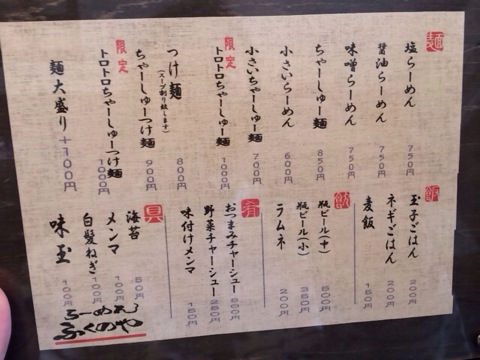 麺
塩らーめん 750円
醤油らーめん 750円
味噌らーめん 750円
ちゃーしゅー麺 850円
小さいらーめん 600円
小さいちゃーしゅー麺 700円
限定
トロトロちゃーしゅー麺 1000円
つけ麺 800円
(スープ割り致します)
ちゃーしゅーつけ麺 900円
限定
トロトロちゃーしゅーつけ麺 1000円
麺大盛り +100円
飯
玉子ごはん 200円
ネギごはん 200円
麦飯 150円
飲
瓶ビール(中) 500円
瓶ビール(小) 350円
ラムネ 200円
肴
おつまみチャーシュー
野菜チャーシュー 250円
味付けメンマ 150円
具
海苔 50円
メンマ 100円
白髪ねぎ 100円
味玉 100円
らーめん
ふくのや